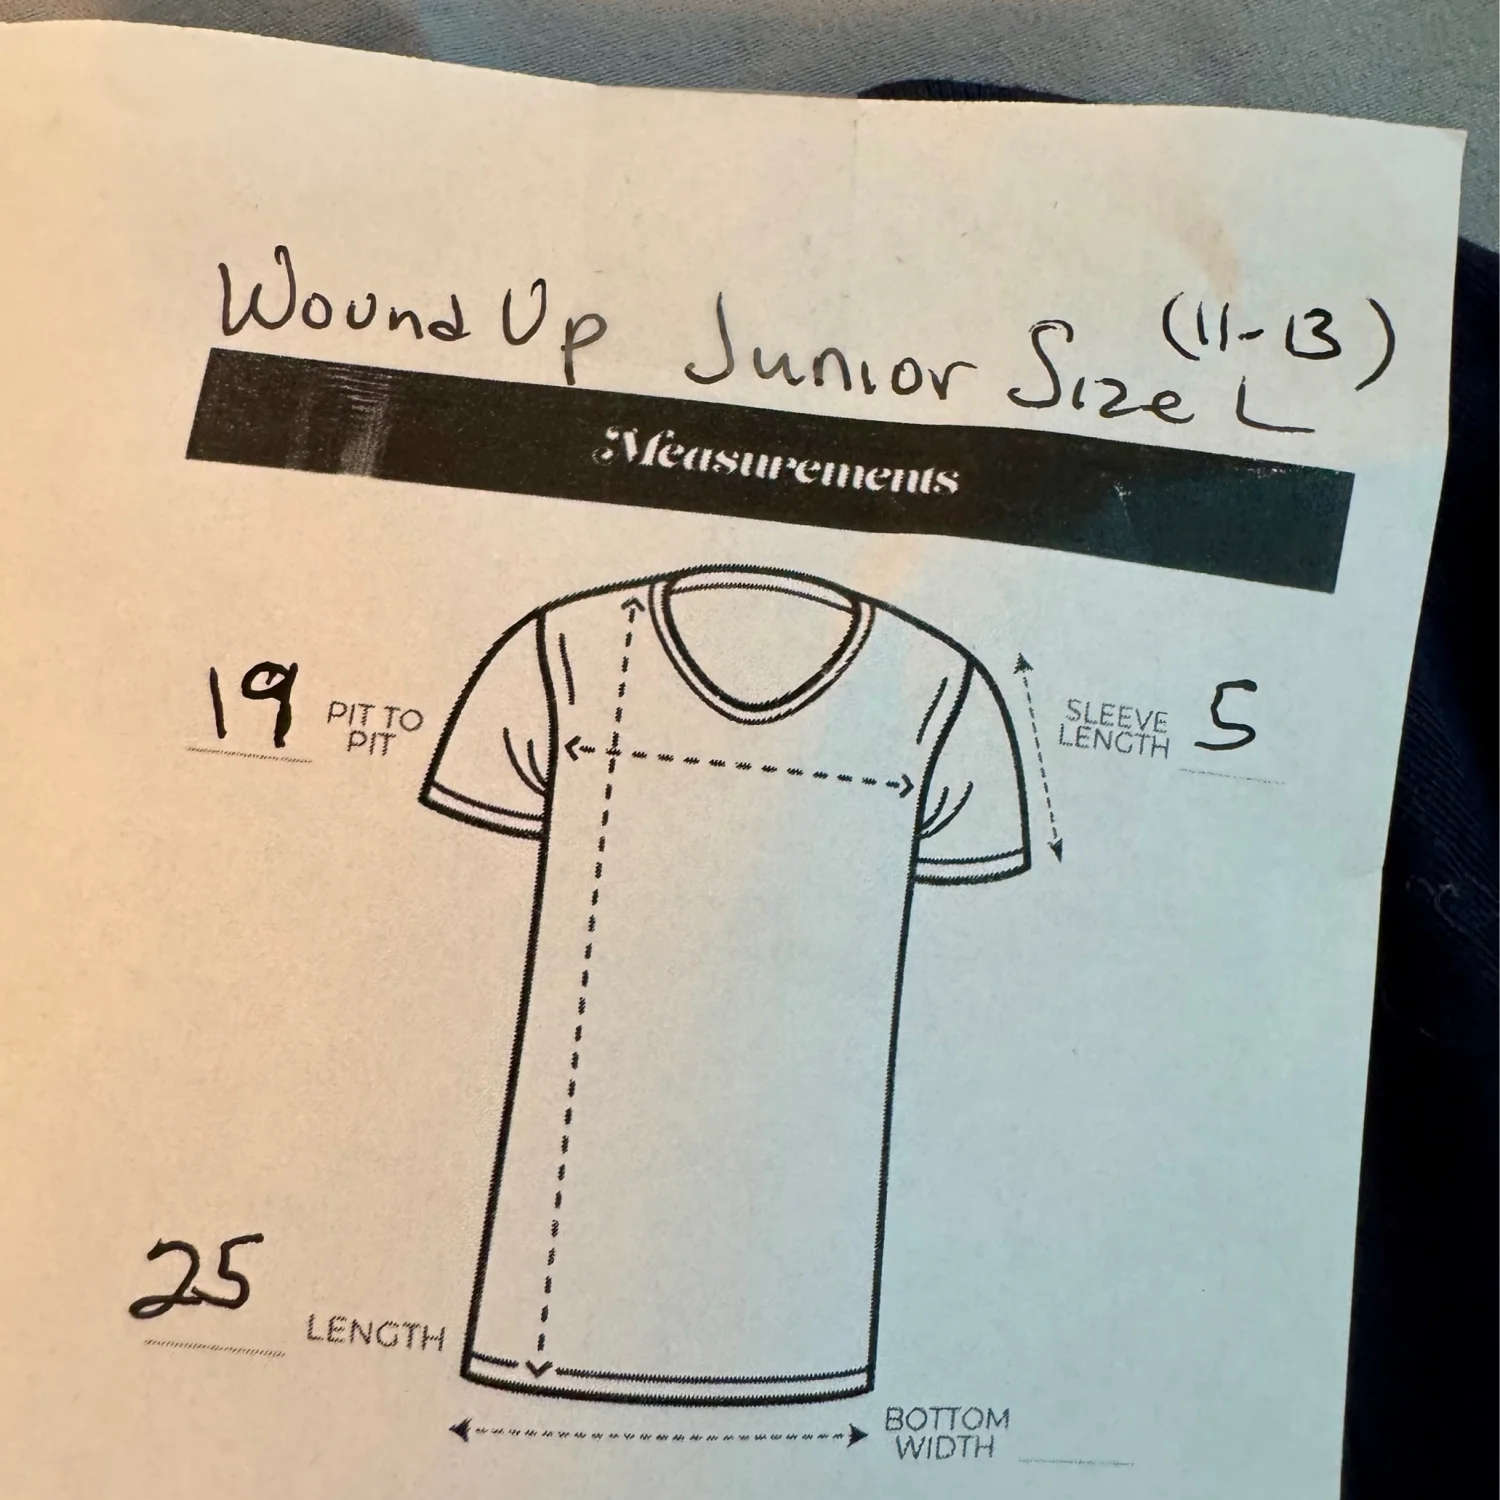 Wound Up Junior Size L (11-13)
Measurements
19 PIT TO
PIT
SLEEVE
LENGTH 5
25
LENGTH
BOTTOM
WIDTH